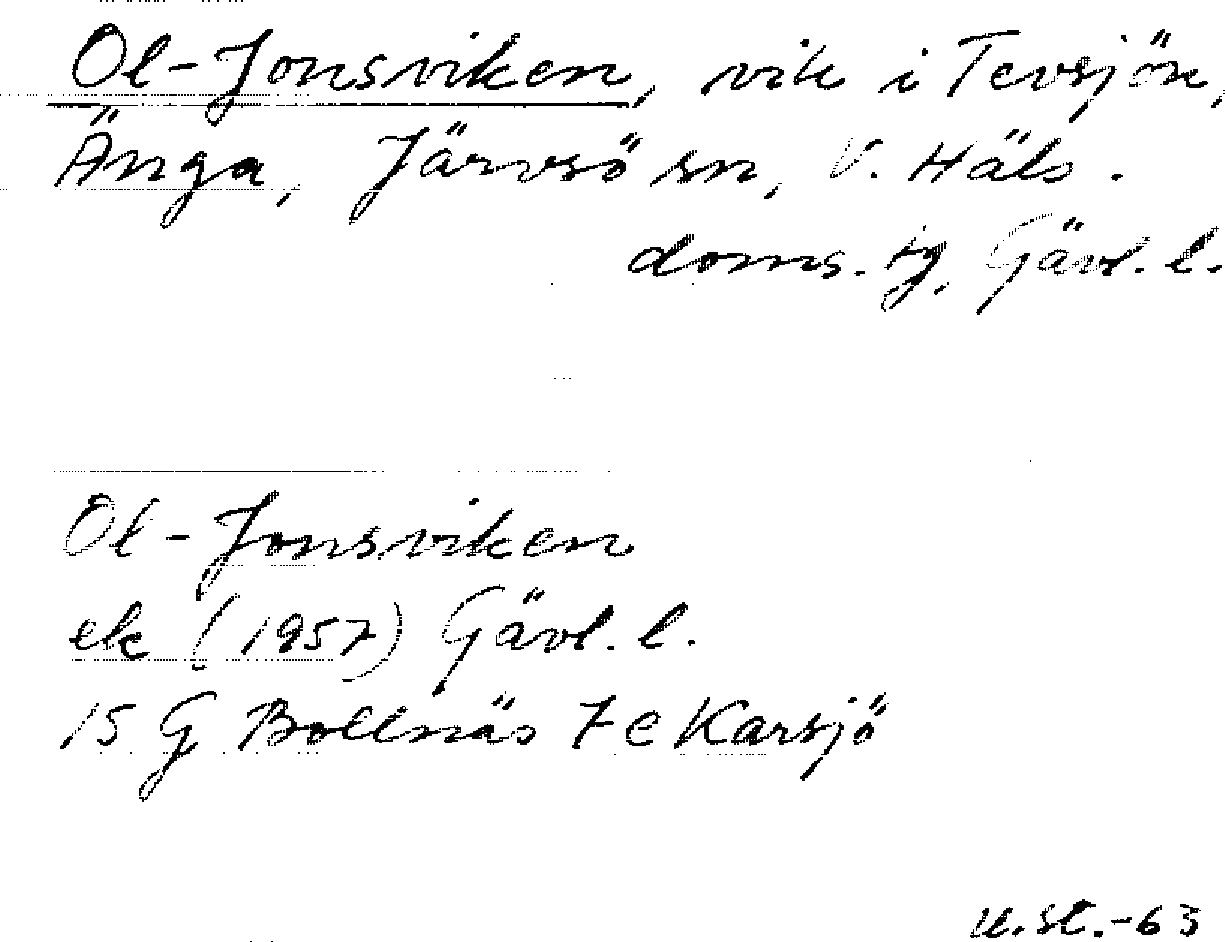 Ol-Jonsviken, vik i Tevsjön,
Änga, Järvsö sn, V. Häls.
doms. tg, Gävl. l.
Ol-Jonsviken
ek (1957) Gävl. l.
15 G Bollnäs 7 e Karsjö
u.st.-63